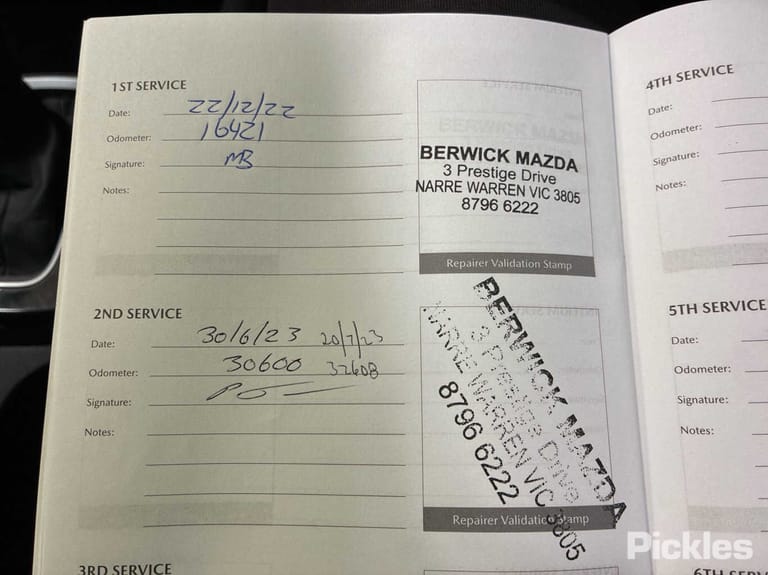 1ST SERVICE
Date: 22/12/22
Odometer: 16421
Signature: MB
Notes:
BERWICK MAZDA
3 Prestige Drive
NARRE WARREN VIC 3805
8796 6222
Repairer Validation Stamp
2ND SERVICE
Date: 30/6/23 20/7/23
Odometer: 30600 32608
Signature:
Notes:
BERWICK MAZDA
3 Prestige Drive
NARRE WARREN VIC 3805
8796 6222
Repairer Validation Stamp
3RD SERVICE
4TH SERVICE
Date:
Odometer:
Signature:
Notes:
5TH SERVICE
Date:
Odometer:
Signature:
Notes:
6TH SERVICE
Pickles